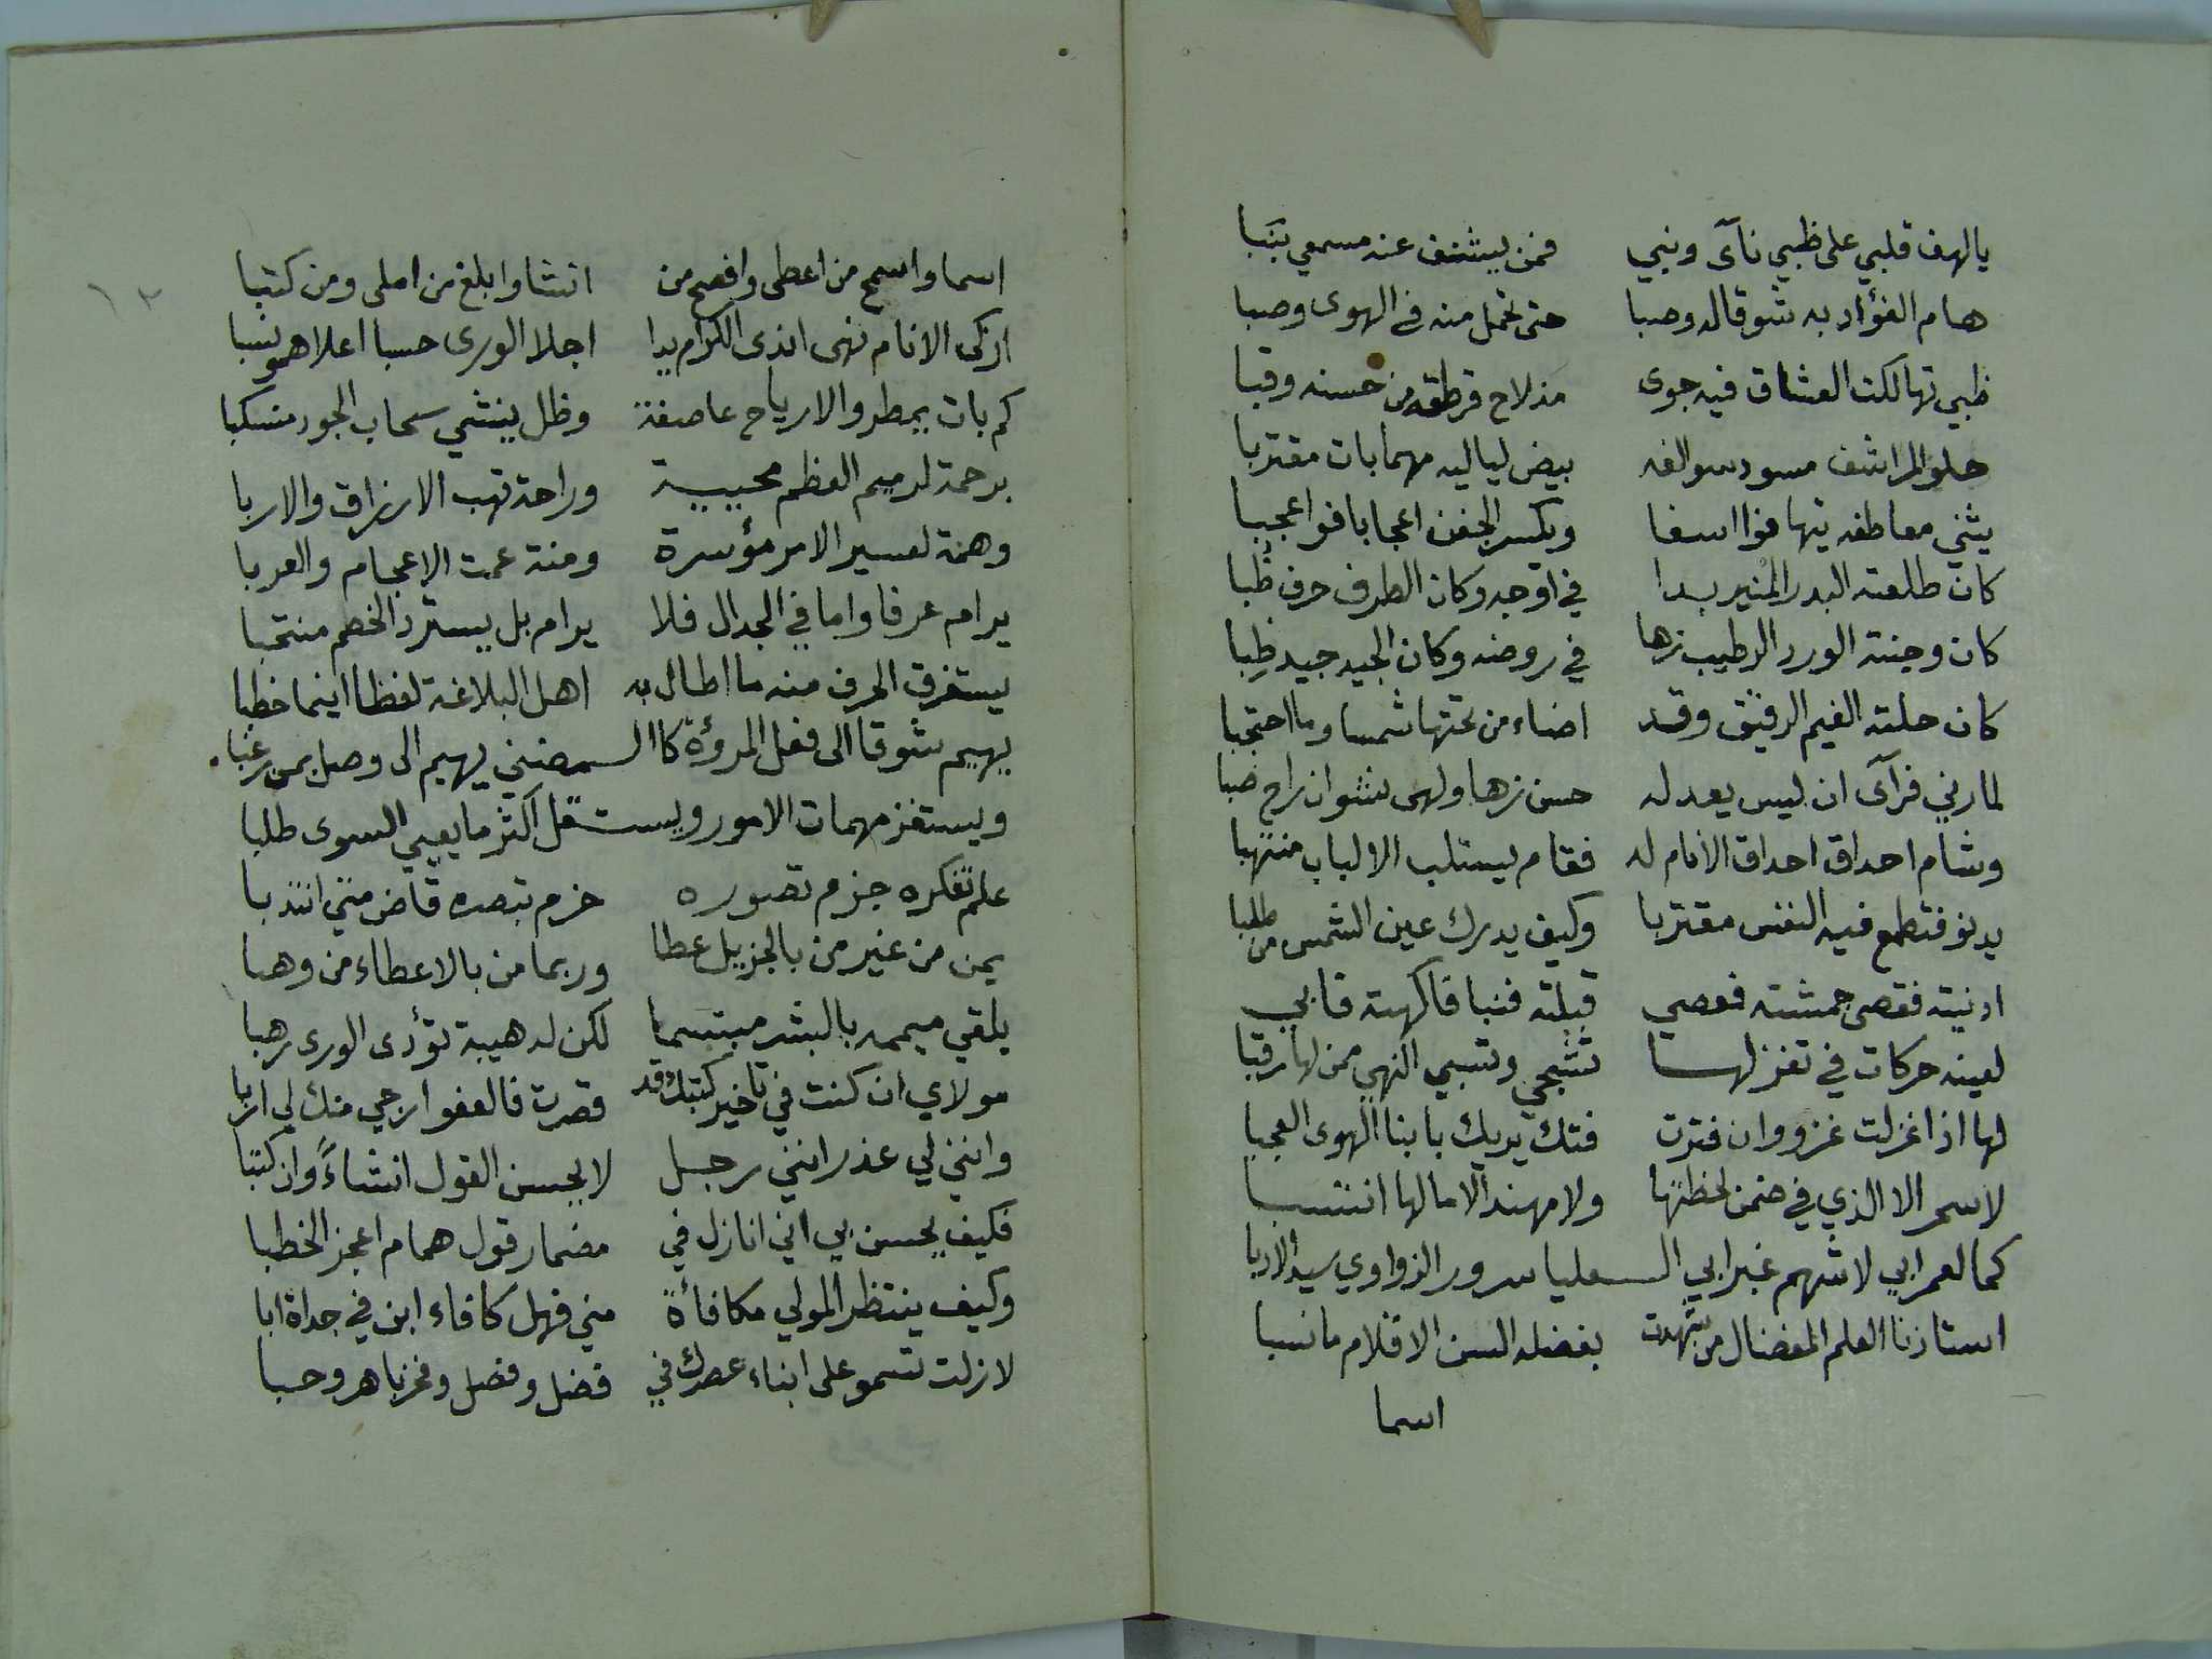 يا لهف قلبي على ظبي نآى ونبي فمن يشنف عنه مسمعي بنبا
هام الفؤاد به شوقا له وصبا حتى تحمل منه في الهوى وصبا
ظبي تهالكت العشاق فيه جوى مذ لاح قرطقه من حسنه وقبا
حلو المراشف مسود سوالفه بيض لياليه مهما بات مقتربا
يثني معاطفه تيها فوا اسفا ويكسر الجفن اعجابا فوا عجبا
كان طلعته البدر المنير بدا في اوجه وكان الطرف حرف ظبا
كان وجنته الورد الرطيب زها في روضه وكان الجيد جيد ظبا
كان حلته الغيم الرقيق وقد اضاء من تحتها شمسا وما احتجبا
لما رني فرآى ان ليس يعدله حسن زها ولهى نشوان راح صبا
وشام احداق احداق الانام له فقام يستلب الالباب منتهبا
يدنو فتطمع فيه النفس مقتربا وكيف يدرك عين الشمس من طلبا
ادنيته فقصى جمشته فعصي قبلته فنبا فاكهته فابى
لعينه حركات في تغزلها تشجي وتسبي النهى ممن لها رقبا
لها اذا غزلت غزو وان فترت فتك يريك بابنا الهوى العجبا
لا سمر الا الذي في ضمن لحظتها ولا مهند الا ما لها انتسبا
كما لعمرابي لا شهم غير ابي العليا سرور الزواوي سيد الادبا
استاذنا العلم المفضال من شهدت بفضله السن الاقلام ما نسبا
اسما
١٢
اسما واسمح من اعطى وافصح من انشا وابلغ من املى ومن كتبا
ازكى الانام نهى اندى الكرام يدا اجلا الورى حسبا اعلاهمو نسبا
كم بات يمطر والارياح عاصفة وظل ينشي سحاب الجود منسكبا
برحمة لرميم العظم محيية وراحة تهب الارزاق والاربا
وهمة لعسير الامر مؤسرة ومنة عمت الاعجام والعربا
يرام عرفا واما في الجدال فلا يرام بل يسترد الخصم منتحبا
يستغرق الحرف منه ما اطال به اهل البلاغة لفظا اينما خطبا
يهيم شوقا الى فعل المروءة كالمضني يهيم الى وصل بمن رغبا
ويستفز مهمات الامور ويستقل اكثر ما يعيي السوى طلبا
علم تفكره جزم تصوره حزم تبصره قاض متى انتدبا
يمن من غير من بالجزيل عطا وربما من بالاعطاء من وهبا
يلقي ميممه بالبشر مبتسما لكن له هيبة تؤدى الورى رهبا
مولاي ان كنت في تاخير كتبك قد قصرت فالعفو ارجي منك لي اربا
وانني لي عذر انني رجل لا يحسن القول انشاءً وان كتبا
فكيف يحسن بي اني انازل في مضمار قول همام اعجز الخطبا
وكيف ينتظر المولى مكافاة مني فهل كافاء ابن في جداة ابا
لا زلت تسمو على ابناء عصرك في فضل وفصل وفخر باهر وحبا